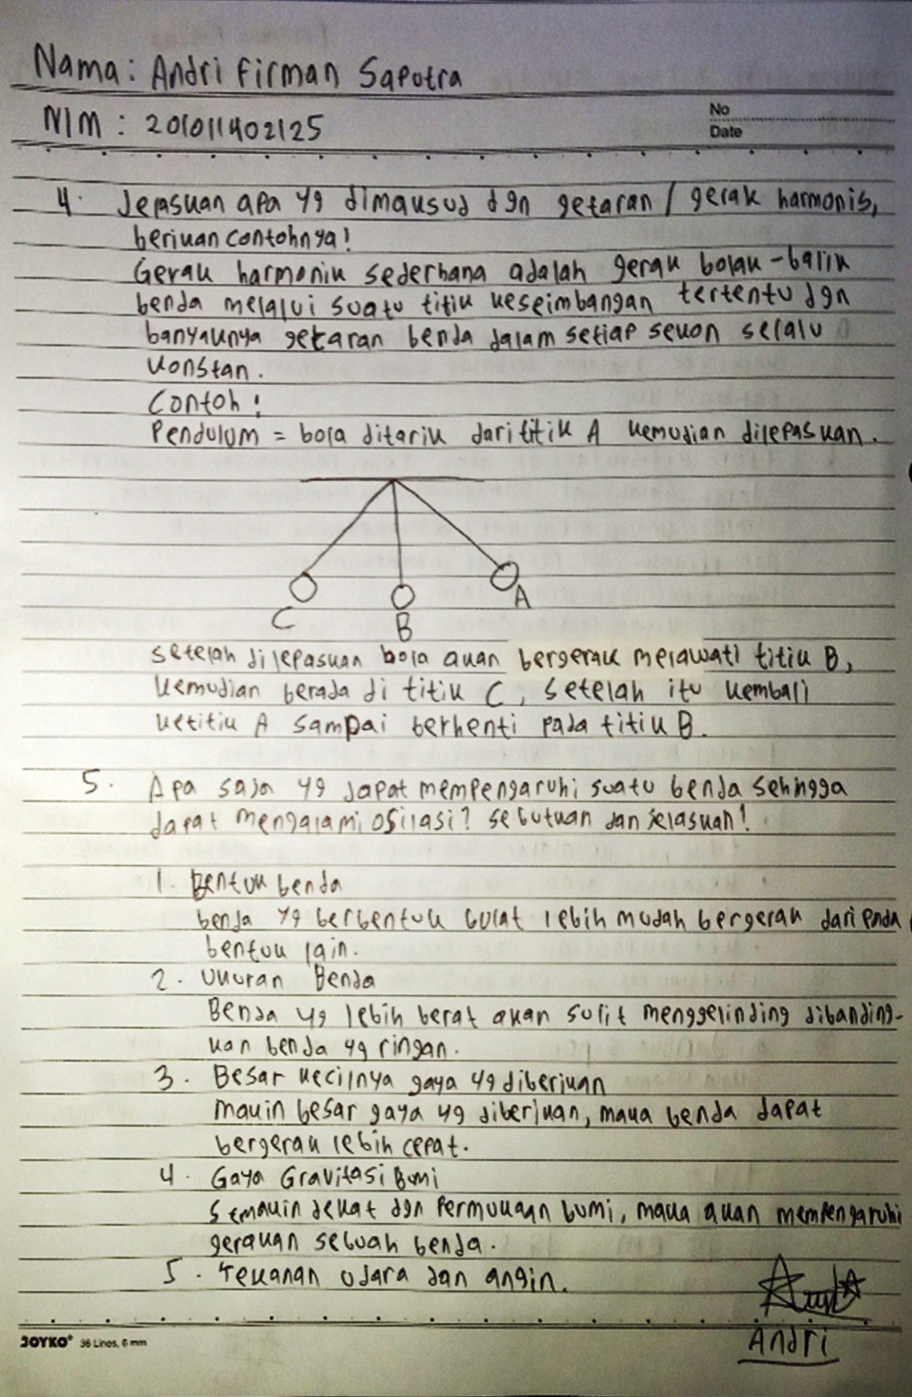 Nama : Andri Firman Saputra
NIM : 201011402125
No
Date
4. Jelaskan apa yg dimaksud dgn getaran / gerak harmonis,
berikan contohnya!
Gerak harmonik sederhana adalah gerak bolak-balik
benda melalui suatu titik keseimbangan tertentu dgn
banyaknya getaran benda dalam setiap sekon selalu
konstan.
Contoh :
Pendulum = bola ditarik dari titik A kemudian dilepaskan.
C
B
A
setelah dilepaskan bola akan bergerak melawati titik B,
kemudian berada di titik C, setelah itu kembali
ketitik A sampai berhenti pada titik B.
5. Apa saja yg dapat mempengaruhi suatu benda sehingga
dapat mengalami osilasi? sebutkan dan jelaskan!
1. Bentuk benda
benda yg berbentuk bulat lebih mudah bergerak dari pada
bentuk lain.
2. Ukuran Benda
Benda yg lebih berat akan sulit menggelinding dibanding-
kan benda yg ringan.
3. Besar kecilnya gaya yg diberikan
makin besar gaya yg diberikan, maka benda dapat
bergerak lebih cepat.
4. Gaya Gravitasi Bumi
Semakin dekat dgn Permukaan bumi, maka akan mempengaruhi
gerakan sebuah benda.
5. Tekanan udara dan angin.
JOYKO 36 Lines, 6 mm
Andri